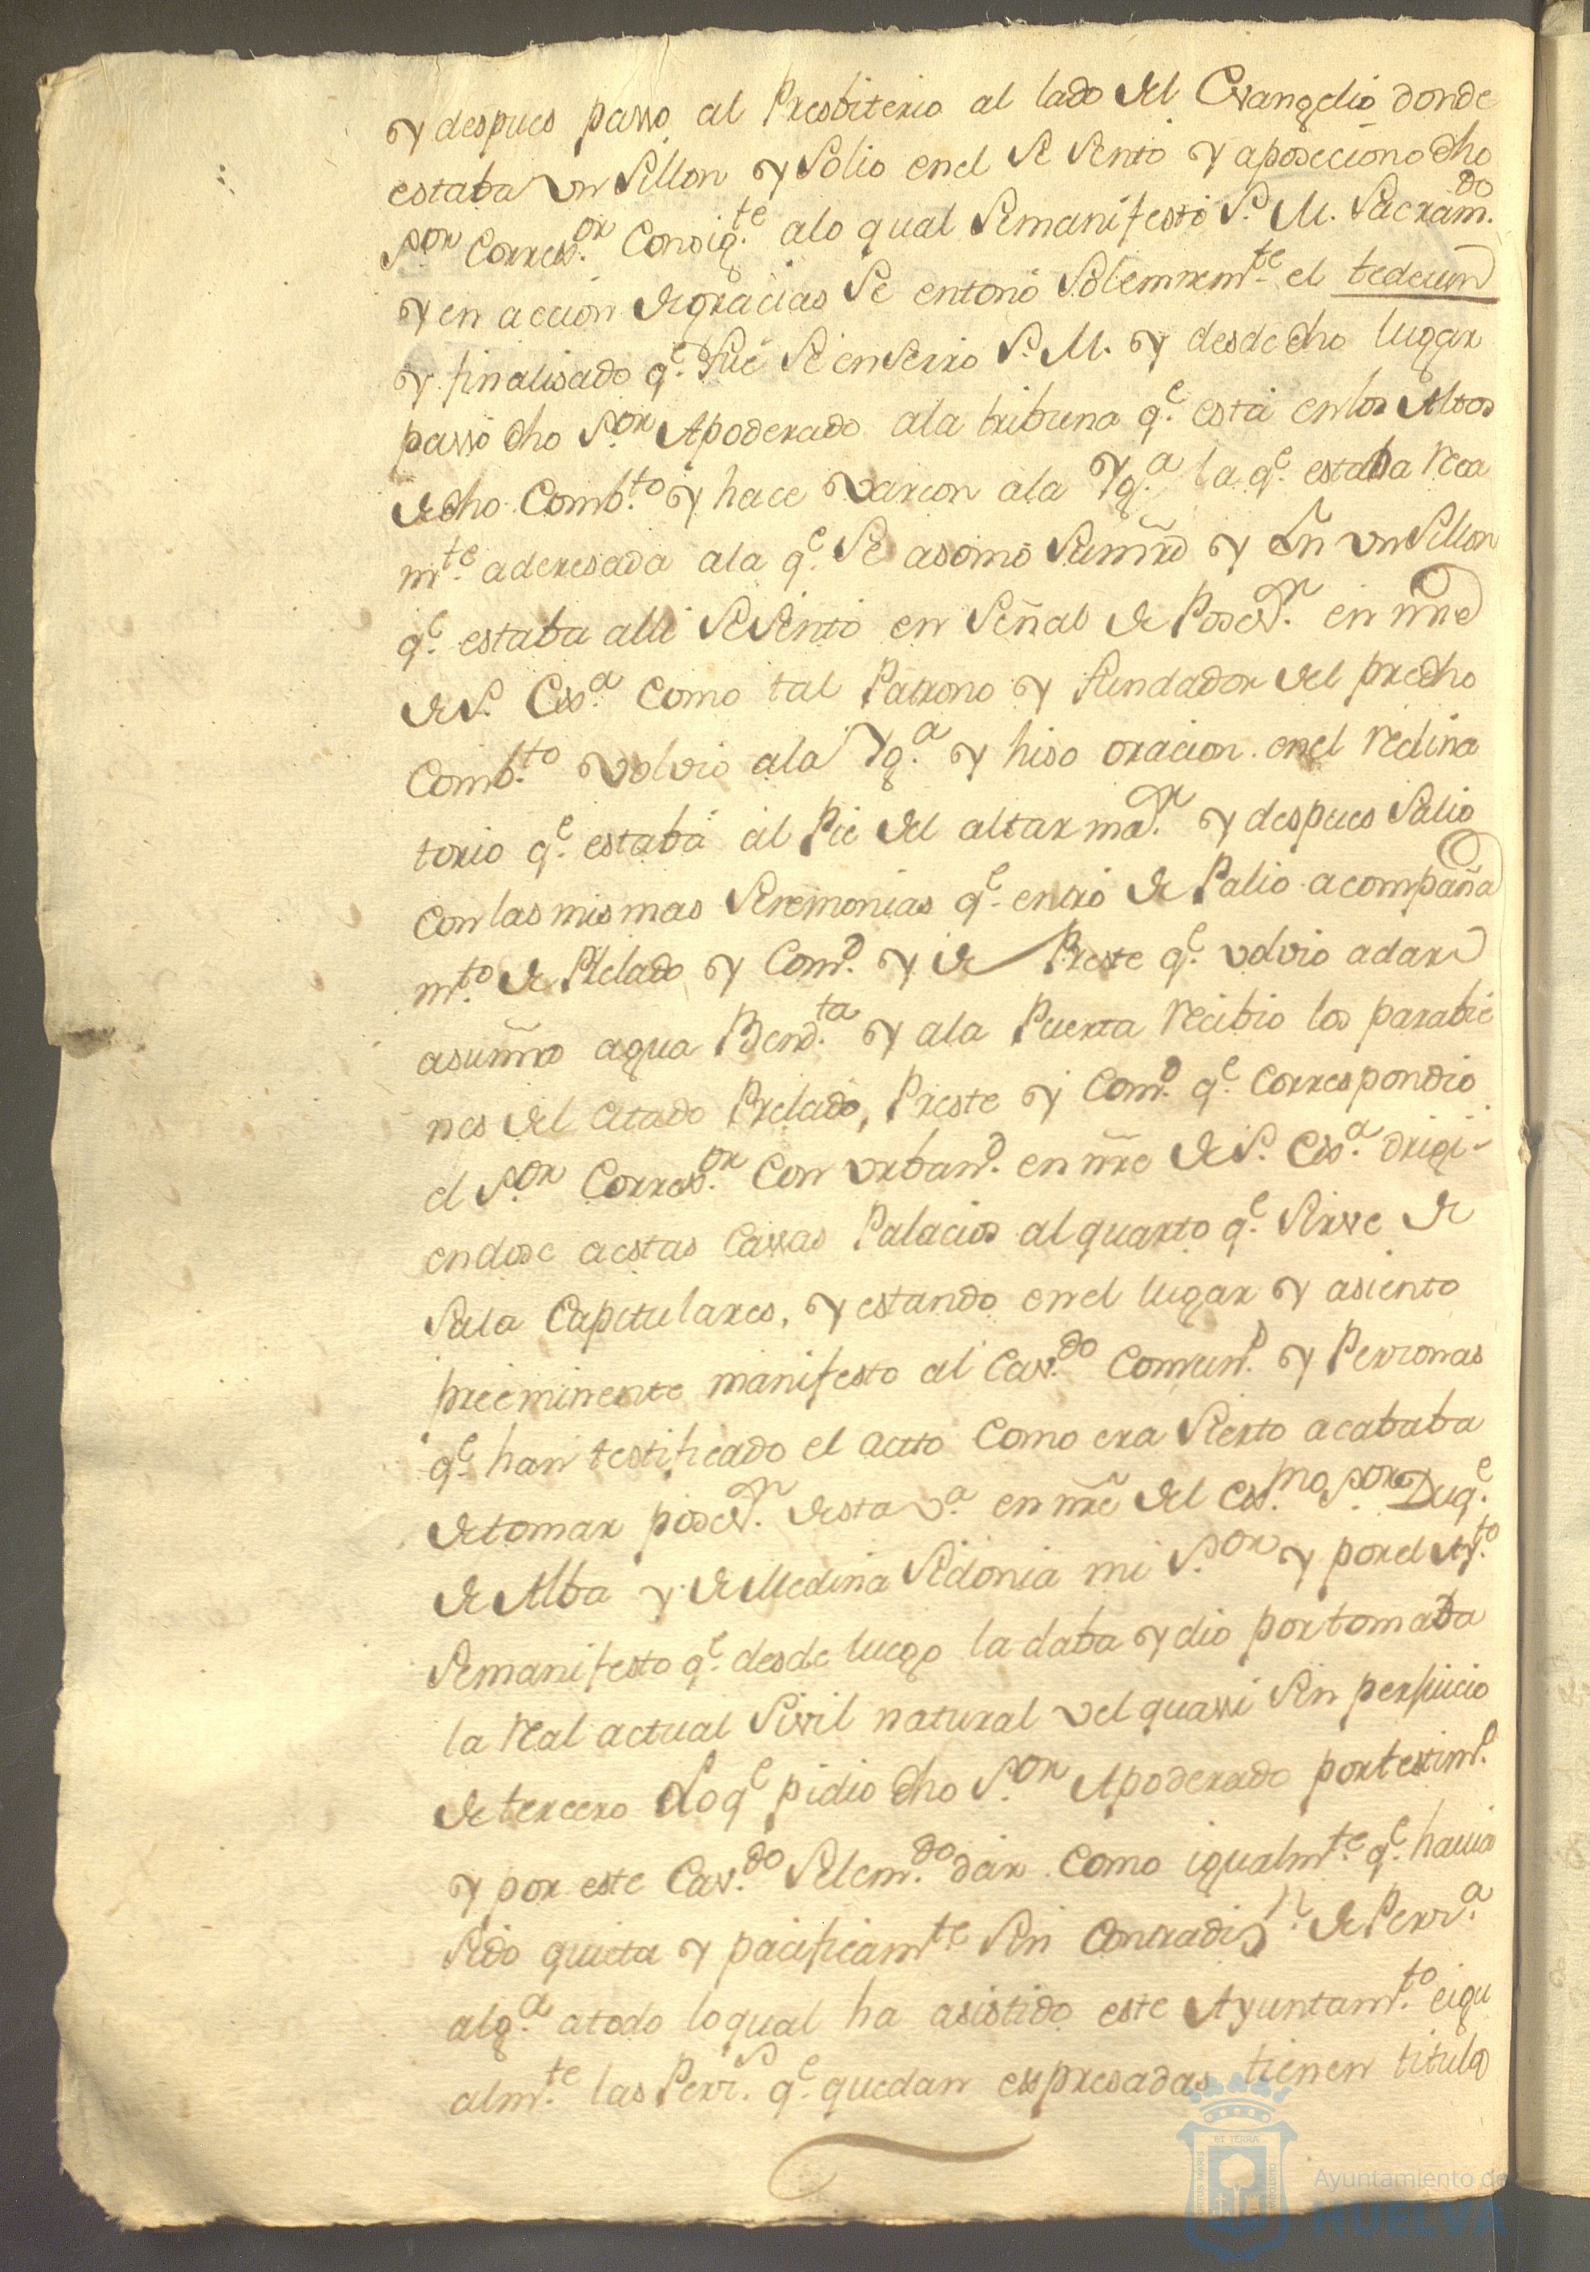 y despues passo al Presbiterio al lado del Evangelio donde
estaba vn Sillon y Solio en el Se Sento y aposeciono dho
S.or Corres.or Consig.te alo qual Semanifesto S. M. Sacram.do
y en accion de gracias Se entono Solemnem.te el tedeum
y finalisado q.e fue Se enserro S. M. y desde dho lugar
passo dho S.or Apoderado ala tribuna q.e esta en los Altos
de dho Comb.to y hace varcon ala Yg.a la q.e estaba rica
m.te aderesada ala q.e Se asomo Sumrd y En vn Sillon
q.e estaba alli Se Sento en Señal de Poses.n en nre
de S. Exs.a Como tal Patrono y Fundador del predho
Comb.to volvio ala Yg.a y hiso oracion en el reclina
torio q.e estaba al Pie del altar ma.r y despues Salio
con las mismas Seremonias q.e entro de Palio acompaña
m.to de Prelado y Com.d y de Preste q.e volvio adar
asumrd agua Bend.ta y ala Puerta recibio los parabie
nes del citado Prelado, Preste y Com.d q.e correspondio
el S.or Corres.or Con vrban.d en nre de S. Exs.a dirigi-
endose a estas Cassas Palacios al quarto q.e Sirve de
Sala Capitulares, y estando en el lugar y asiento
preeminente manifesto al Cav.do Comun.d y Perssonas
q.e han testificado el acto Como era Sierto acababa
de tomar poses.n de esta v.a en nre del Exs.mo S.or Duq.e
de Alba y de Medina Sidonia mi S.or y por el Ay.to
Semanifesto q.e desde luego la daba y dio por tomada
la real actual Sivil natural vel quassi Sin perjuicio
de tercero Lo q.e pidio dho S.or Apoderado por testim.o
y por este Cav.do Selem.do dar Como igualm.te q.e havia
Sido quieta y pacificam.te Sin Contradis.n de Perss.a
alg.a atodo lo qual ha asistido este Ayuntam.to e igu
alm.te las Perss.s q.e quedan expresadas tienen titulo
ET TERRA
Ayuntamiento de
HUELVA